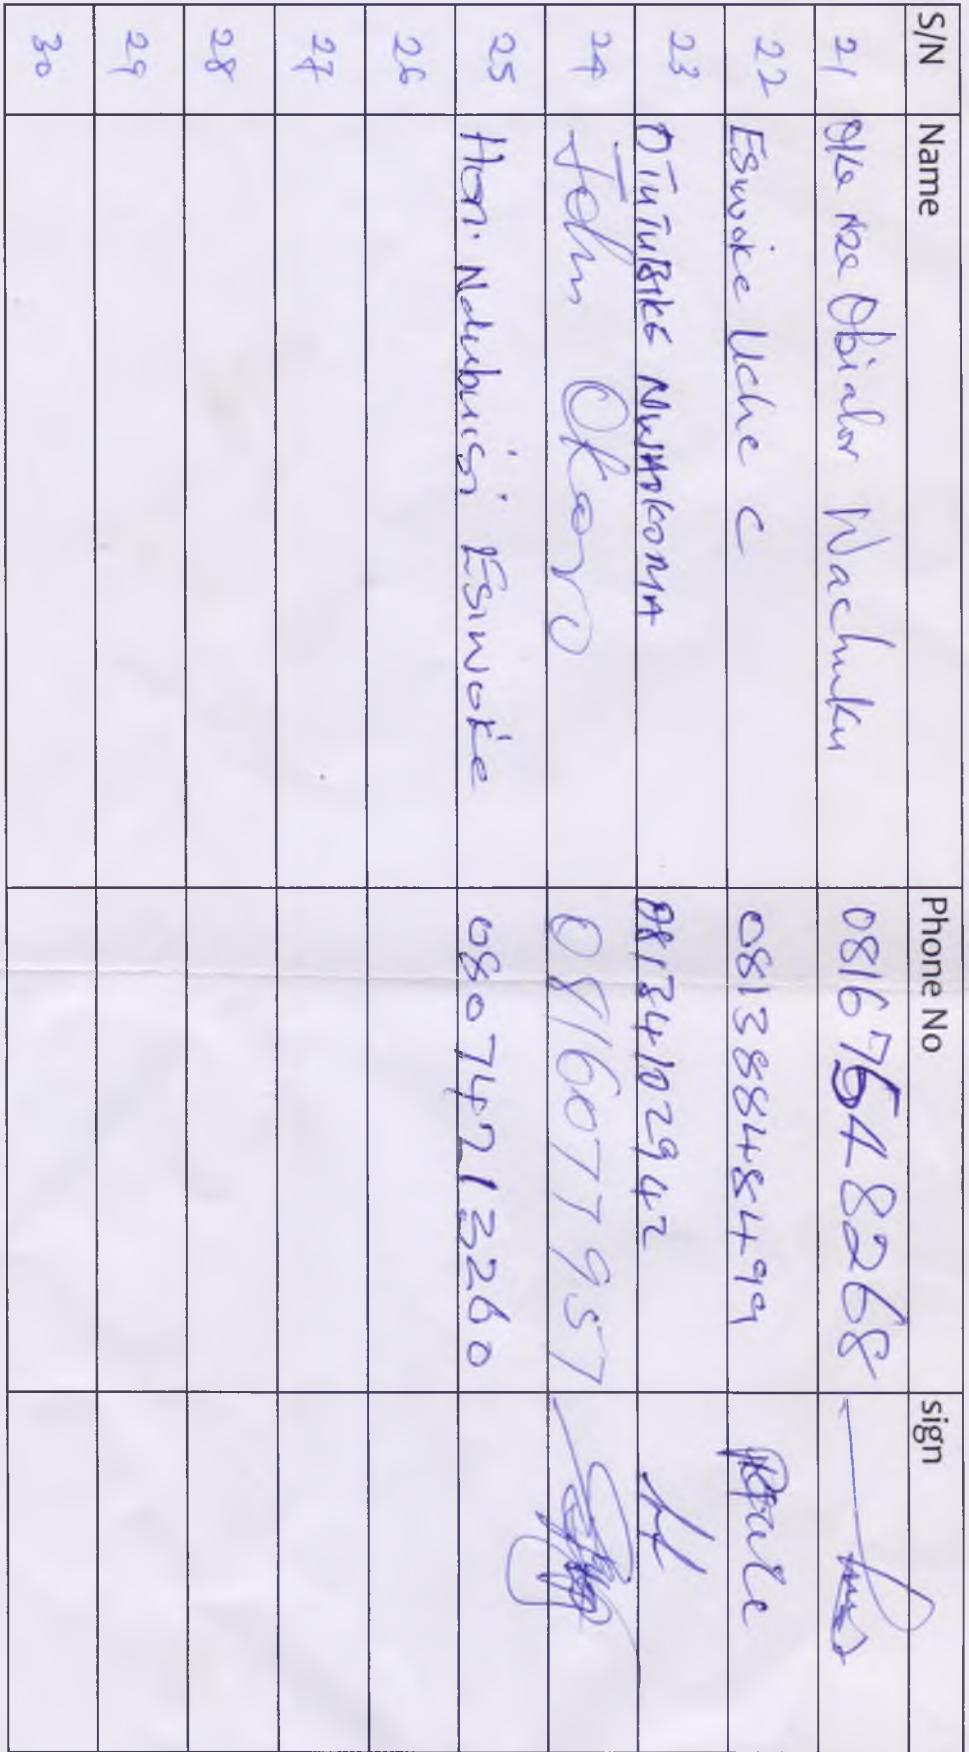 S/N Name Phone No sign
21 Oke Nze Obialor Wachuku 08167648268
22 Eswoke Uche C 08138848499
23 OTUTUBIKE NWAOKOMA 08134102942
24 John Okoro 08160779957
25 Hon. Ndubuisi Esiwoke 08074713260
26
27
28
29
30